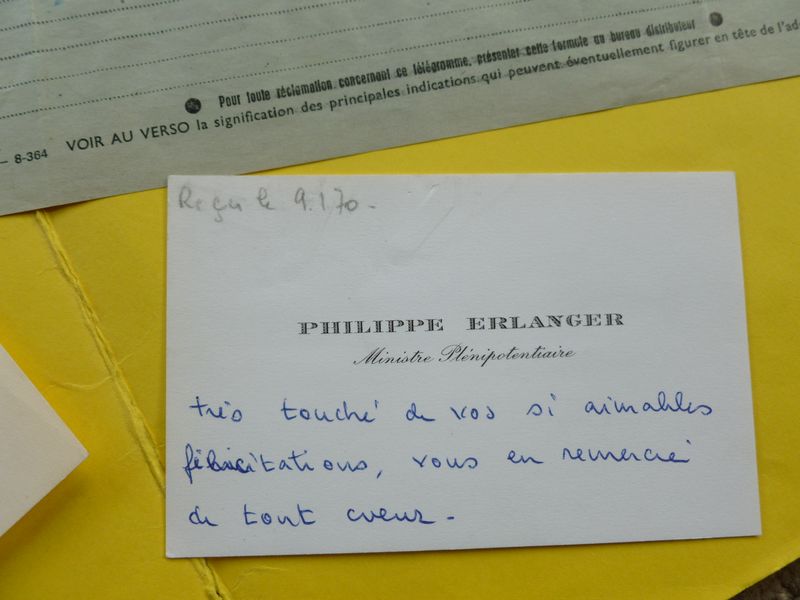 Pour toute réclamation concernant ce télégramme, présenter cette formule au bureau distributeur
– 8-364 VOIR AU VERSO la signification des principales indications qui peuvent éventuellement figurer en tête de l'ad
Reçu le 9.1.70-
PHILIPPE ERLANGER
Ministre Plénipotentiaire
très touché de vos si aimables
félicitations, vous en remercie
de tout cœur-